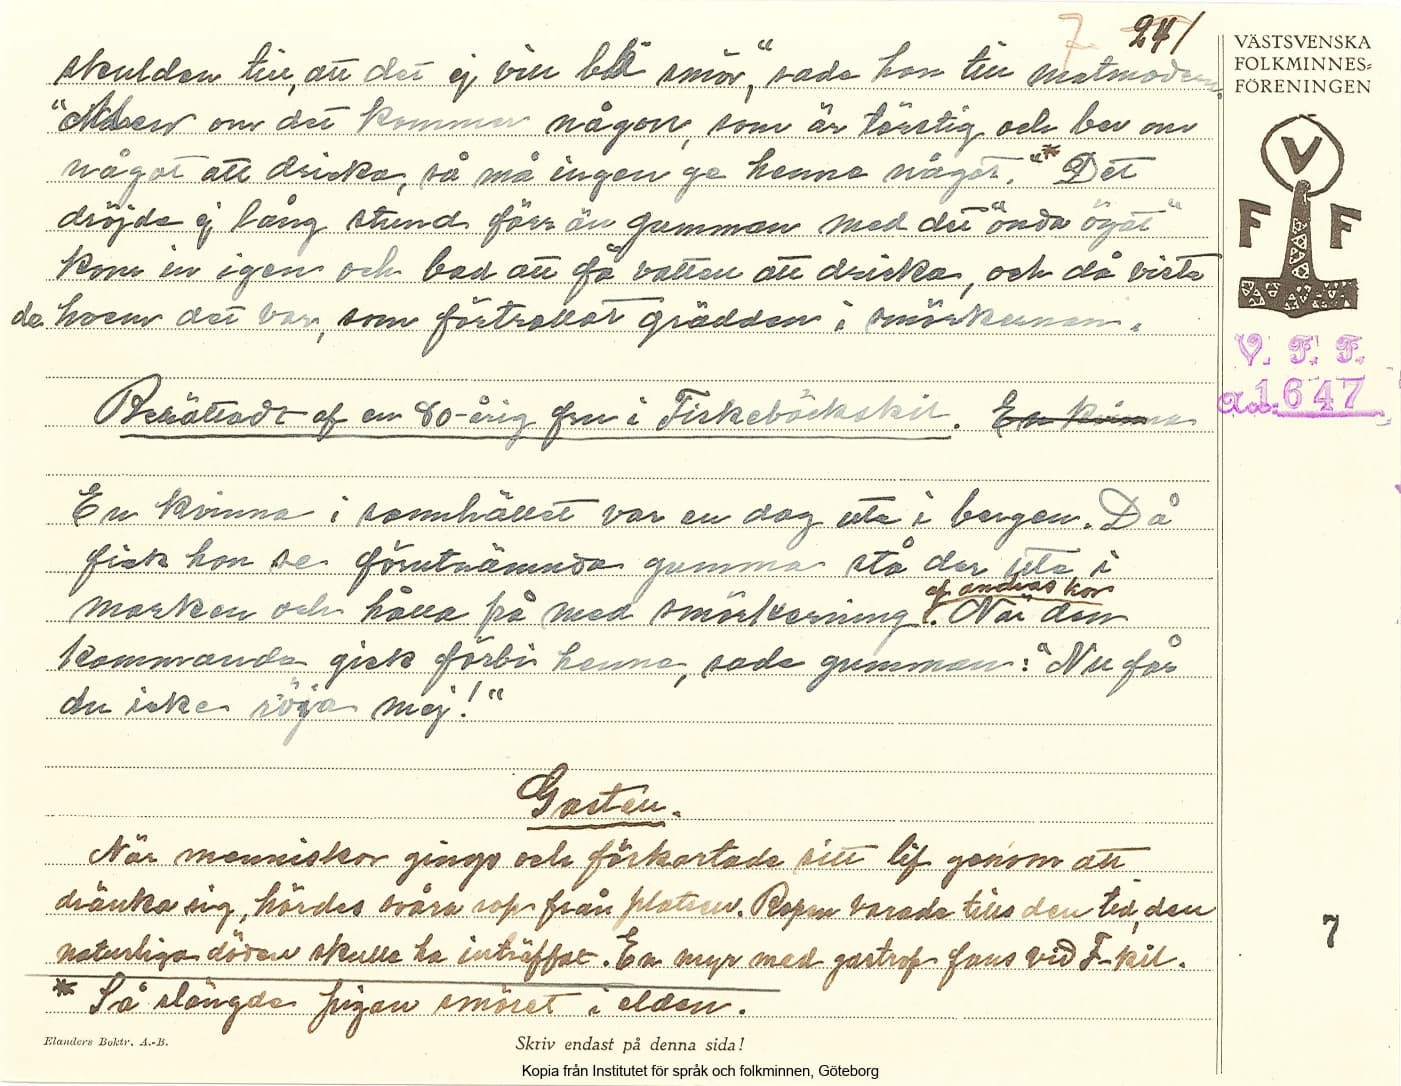 7 241
skulden till, att det ej vill bli smör,“ sade hon till matmodern.
“Men om det kommer någon, som är törstig och ber om
något att dricka, så må ingen ge henne något.“* Det
dröjde ej lång stund förr än gumman med det “onda ögat“
kom in igen och bad att få vatten att dricka, och då visste
de hvem det var, som förtrollat grädden i smörkernan.
Berättadt af en 80-årig fru i Fiskebäckskil. En kvinna
En kvinna i samhället var en dag ute i bergen. Då
fick hon se förutnämnda gumma stå der ute i
af andras kor
marken och hålla på med smörkerning. När den
kommande gick förbi henne, sade gumman: “Nu får
du icke röja mej!“
Gasten.
När menniskor gingo och förkortade sitt lif genom att
dränka sig, hördes svåra rop från platsen. Ropen varade tills den tid, den
naturliga döden skulle ha inträffat. En myr med gastrop fans vid F-kil.
* Så slängde pigan smöret i elden.
VÄSTSVENSKA
FOLKMINNES=
FÖRENINGEN
V
F F
V. F. F.
1647
7
Elanders Boktr. A.-B.
Skriv endast på denna sida!
Kopia från Institutet för språk och folkminnen, Göteborg